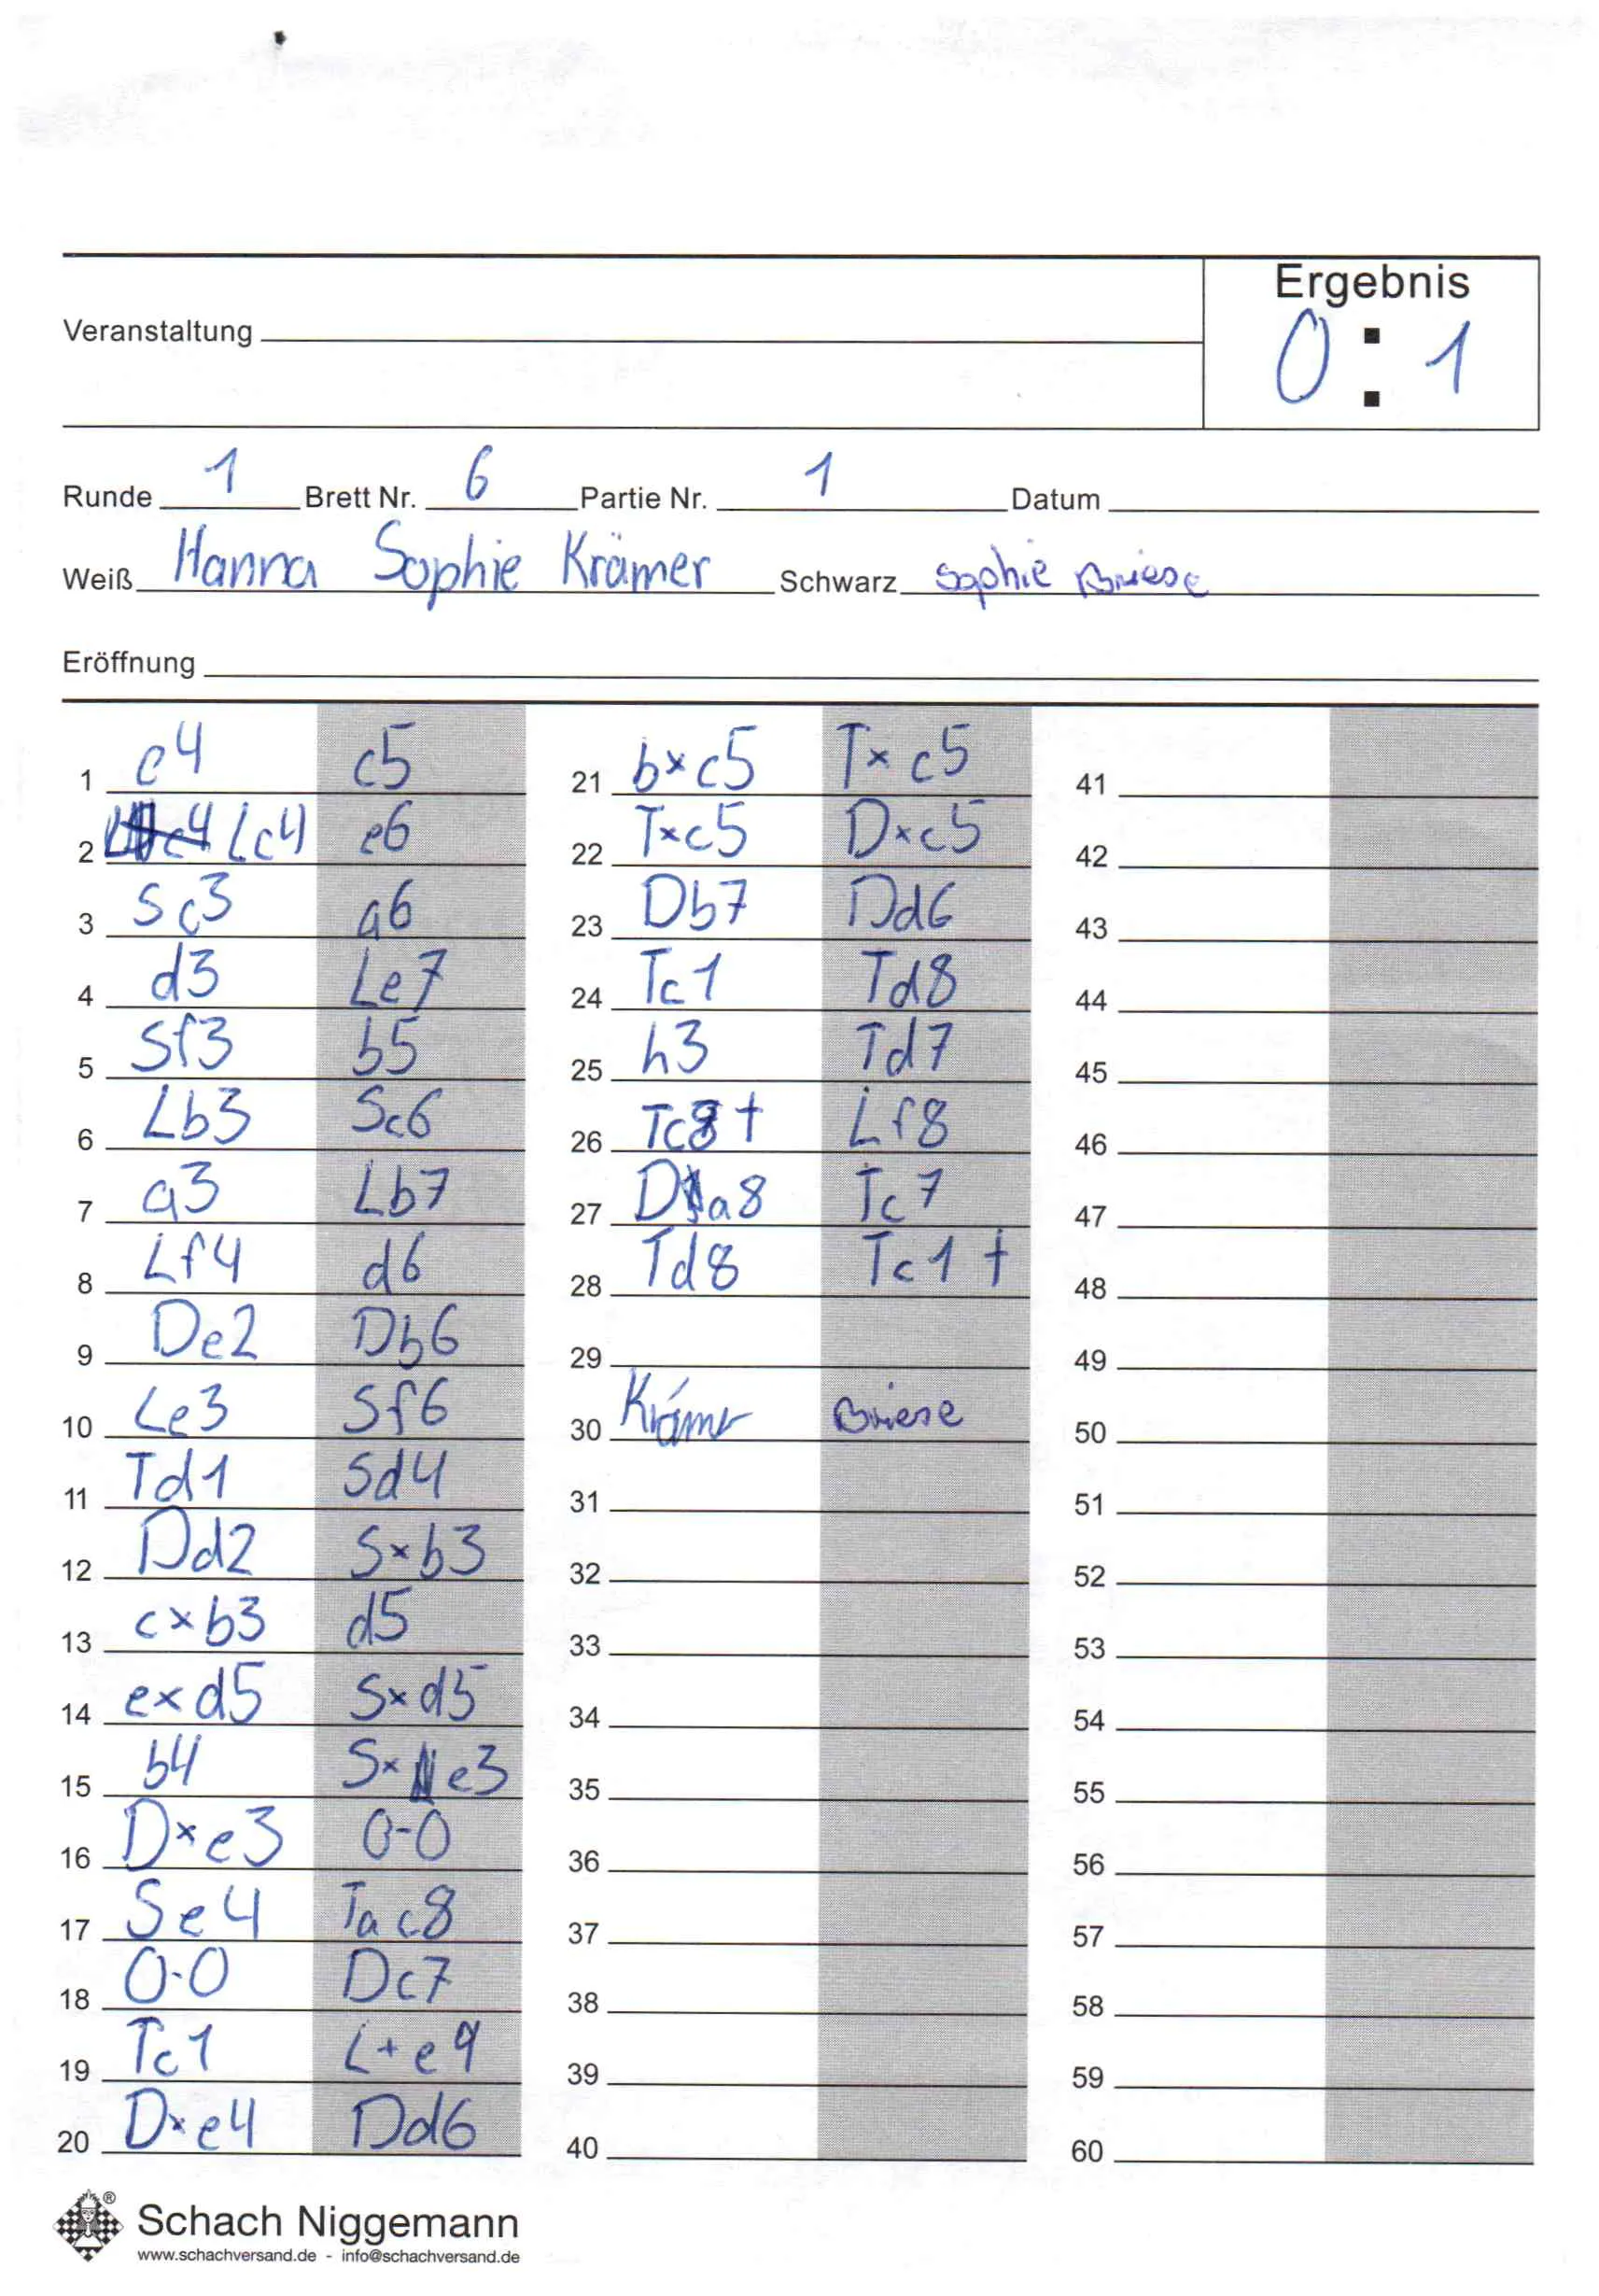 Ergebnis
0 : 1
Veranstaltung
Runde 1 Brett Nr. 6 Partie Nr. 1 Datum
Weiß Hanna Sophie Krämer Schwarz Sophie Briese
Eröffnung
1 e4 c5
2 Lc4 e6
3 Sc3 a6
4 d3 Le7
5 Sf3 b5
6 Lb3 Sc6
7 a3 Lb7
8 Lf4 d6
9 De2 Db6
10 Le3 Sf6
11 Td1 Sd4
12 Dd2 S×b3
13 c×b3 d5
14 e×d5 S×d5
15 b4 S×e3
16 D×e3 0-0
17 Se4 Tac8
18 0-0 Dc7
19 Tc1 L+e4
20 D×e4 Dd6
21 b×c5 T×c5
22 T×c5 D×c5
23 Db7 Dd6
24 Tc1 Td8
25 h3 Td7
26 Tc8+ Lf8
27 Da8 Tc7
28 Td8 Tc1+
29
30 Krämer Briese
31
32
33
34
35
36
37
38
39
40
41
42
43
44
45
46
47
48
49
50
51
52
53
54
55
56
57
58
59
60
® Schach Niggemann
www.schachversand.de - info@schachversand.de